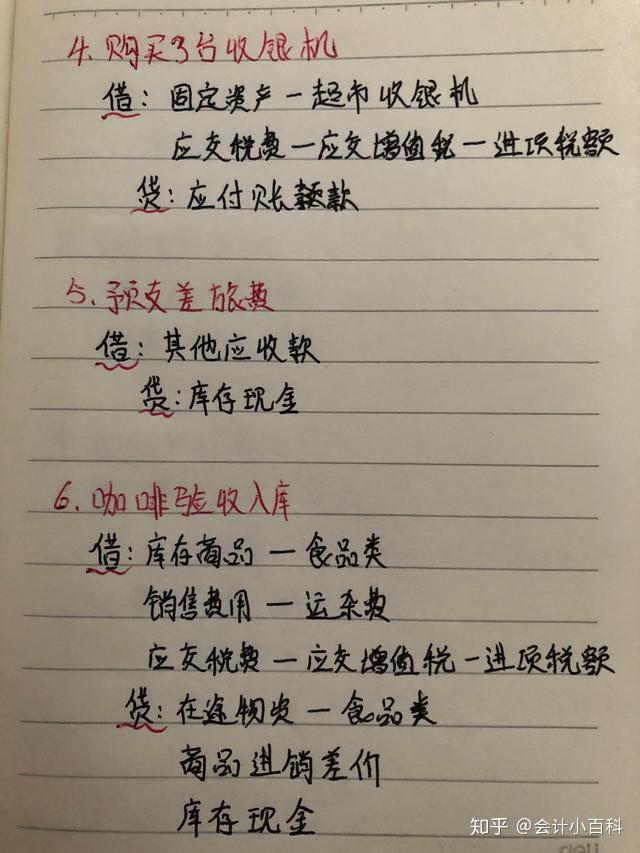 4、购买3台收银机
借：固定资产一超市收银机
应交税费一应交增值税一进项税额
贷：应付账款
5、预支差旅费
借：其他应收款
贷：库存现金
6、咖啡验收入库
借：库存商品一食品类
销售费用一运杂费
应交税费一应交增值税一进项税额
贷：在途物资一食品类
商品进销差价
库存现金
知乎 @会计小百科
deli